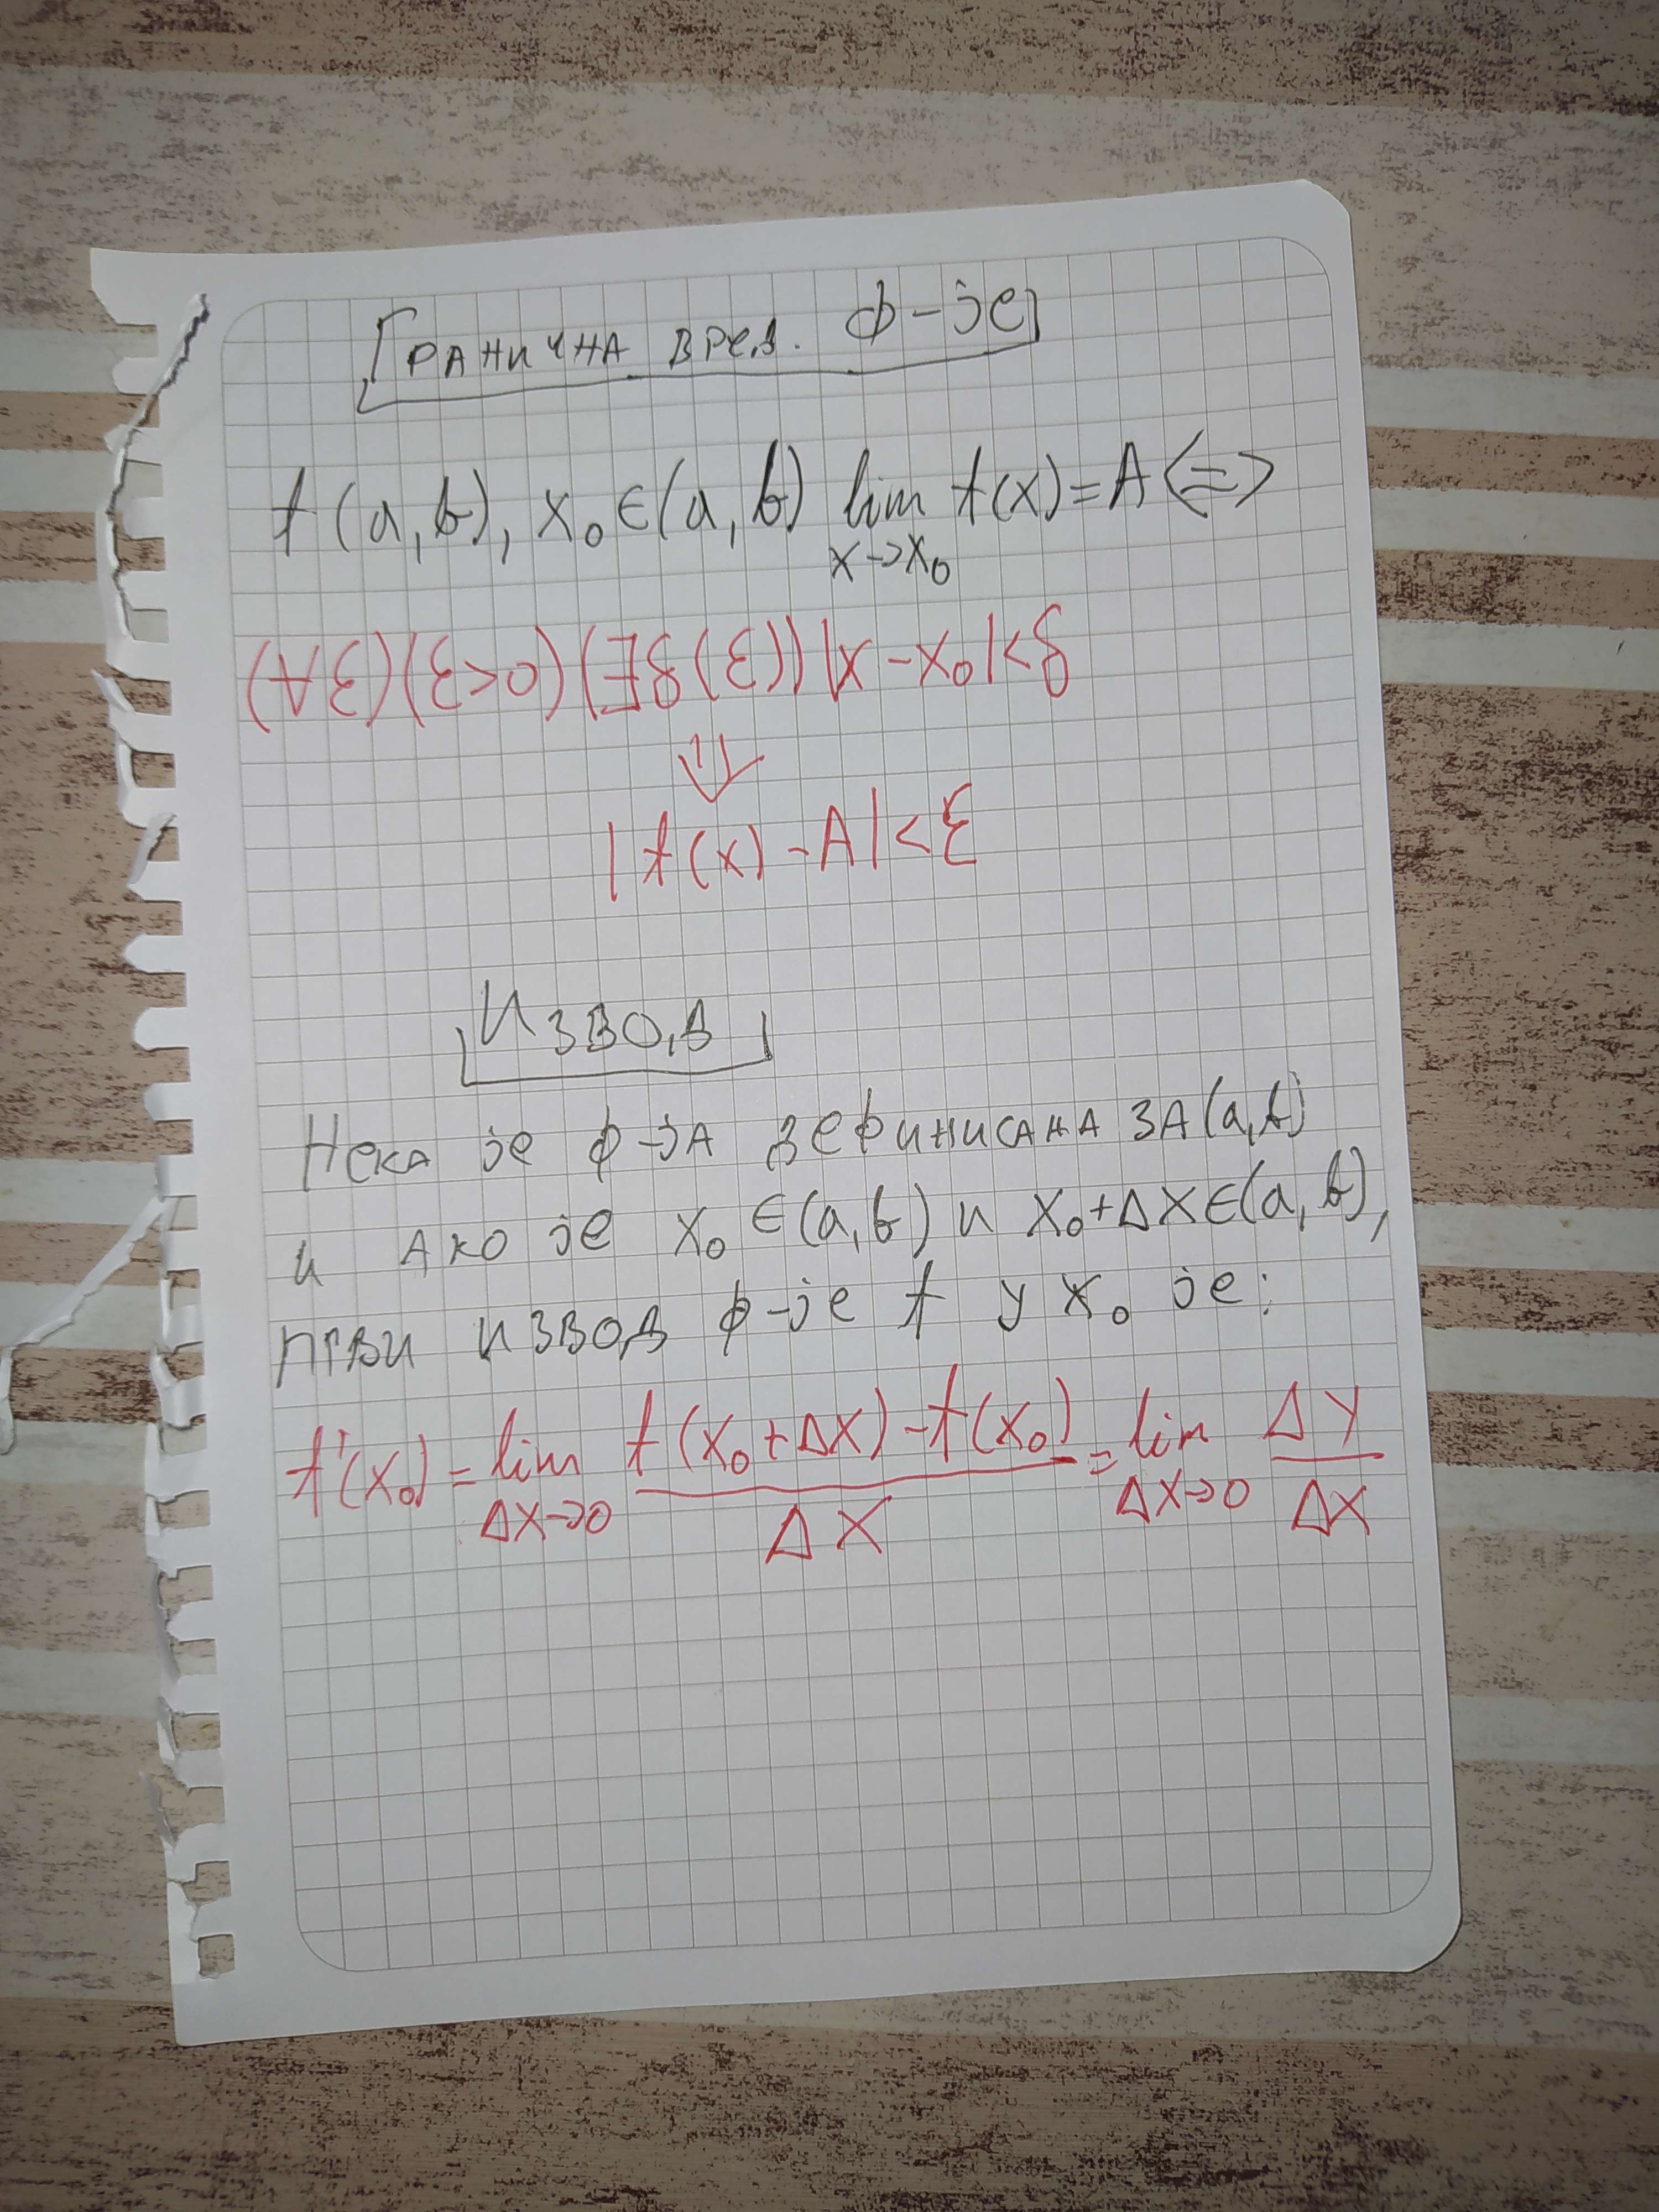 ГРАНИЧНА ВРЕД. Ф-је
f(a,b), x₀∈(a,b) lim f(x)=A<=>
x→x₀
(∀ε)(ε>0)(∃δ(ε))(|x-x₀|<δ
⇓
|f(x)-A|<ε
ИЗВОД
Нека је ф-ја дефинисана за (a,b)
и ако је x₀∈(a,b) и x₀+Δx∈(a,b),
први извод ф-је f у x₀ је:
f'(x₀)=lim f(x₀+Δx)-f(x₀) = lim Δy
Δx→0 Δx Δx→0 Δx